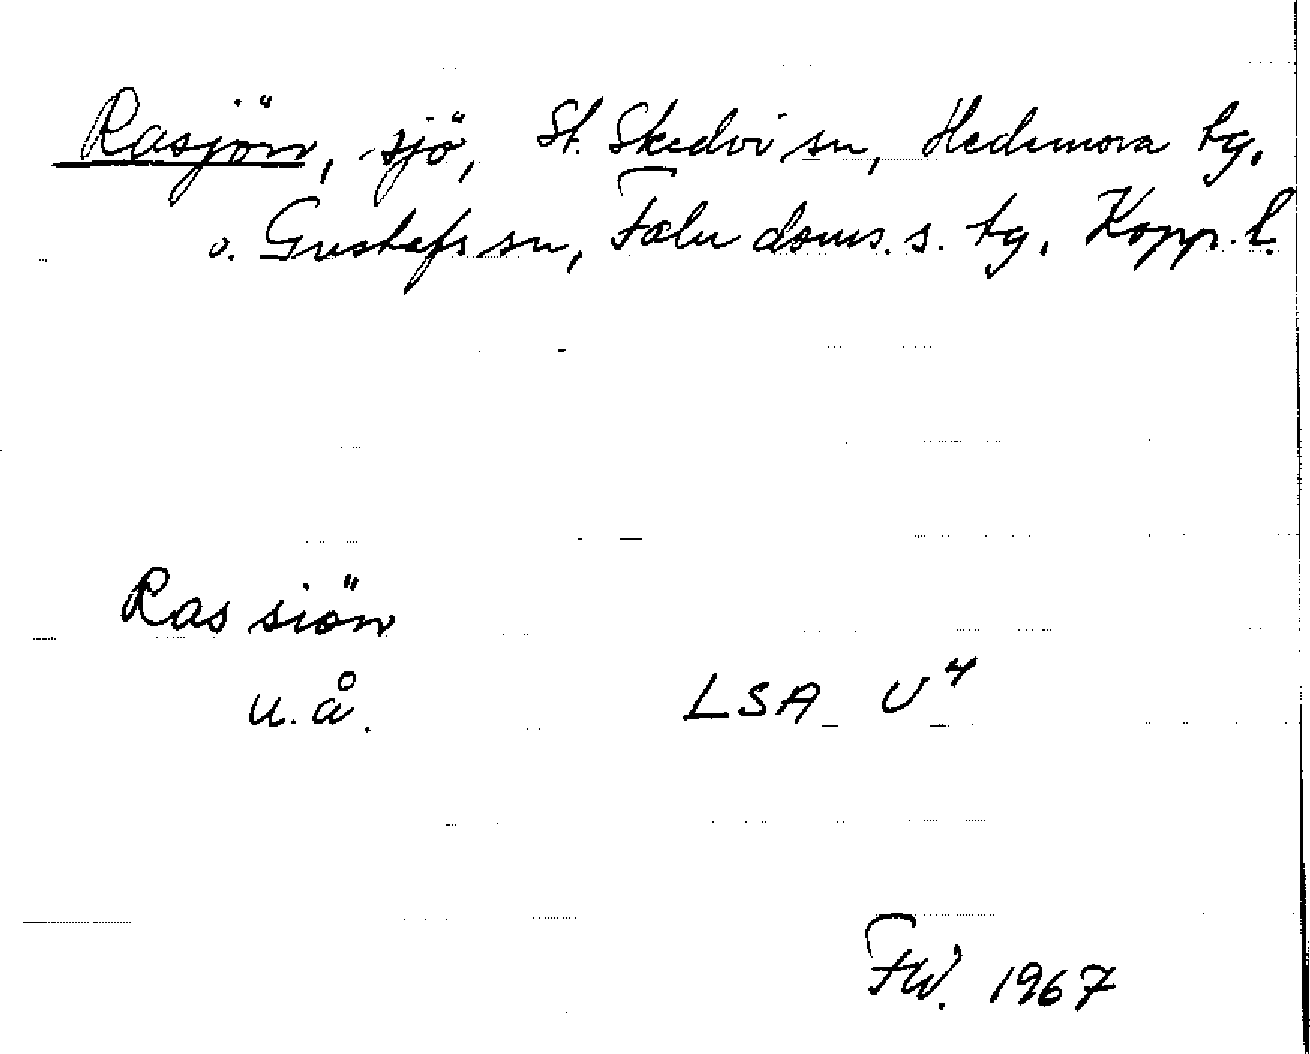 Rasjön, sjö, St. Skedvi sn, Hedemora tg.
o. Gustafs sn, Falu doms. s. tg. Kopp. l.
Ras siön
u.å. LSA U⁴
FW. 1967